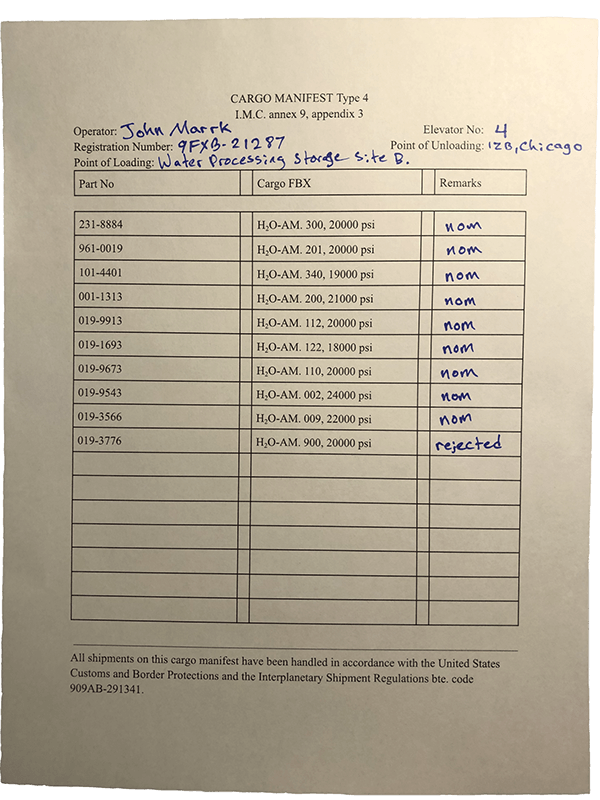 CARGO MANIFEST Type 4
I.M.C. annex 9, appendix 3
Operator: John Marrk Elevator No: 4
Registration Number: 9FXB-21287 Point of Unloading: 12B, Chicago
Point of Loading: Water Processing Storage Site B.
Part No Cargo FBX Remarks
231-8884 H₂O-AM. 300, 20000 psi nom
961-0019 H₂O-AM. 201, 20000 psi nom
101-4401 H₂O-AM. 340, 19000 psi nom
001-1313 H₂O-AM. 200, 21000 psi nom
019-9913 H₂O-AM. 112, 20000 psi nom
019-1693 H₂O-AM. 122, 18000 psi nom
019-9673 H₂O-AM. 110, 20000 psi nom
019-9543 H₂O-AM. 002, 24000 psi nom
019-3566 H₂O-AM. 009, 22000 psi nom
019-3776 H₂O-AM. 900, 20000 psi rejected
All shipments on this cargo manifest have been handled in accordance with the United States
Customs and Border Protections and the Interplanetary Shipment Regulations bte. code
909AB-291341.